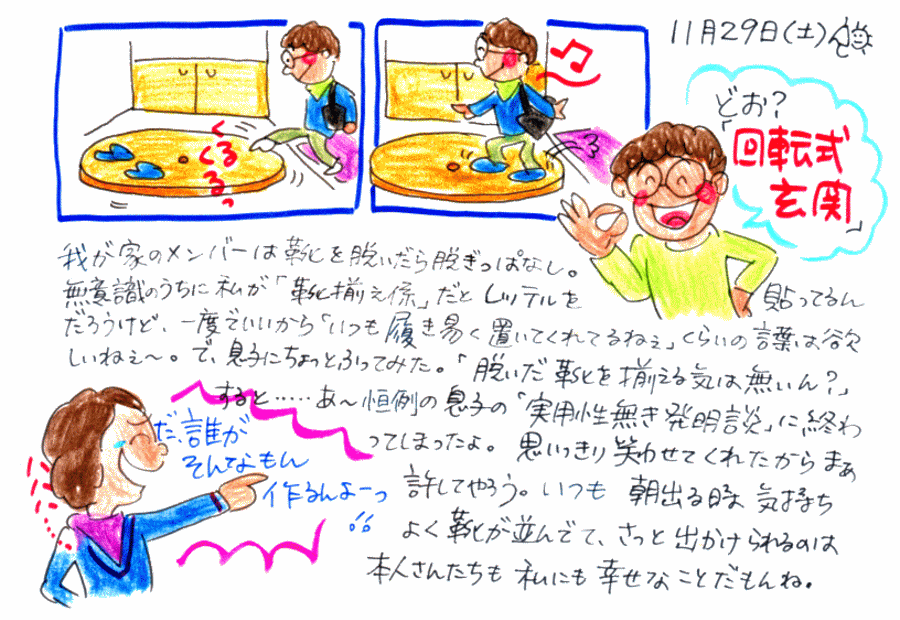 11月29日(土)
どお?
「回転式
玄関」
くるくるっ
我が家のメンバーは靴を脱いだら脱ぎっぱなし。
無意識のうちに私が「靴揃え係」だとレッテルを貼ってるん
だろうけど、一度でいいから「いつも履き易く置いてくれてるねぇ」くらいの言葉は欲
しいねぇ〜。で、息子にちょっとふってみた。「脱いだ靴を揃える気は無いん?」
すると……あ〜恒例の息子の「実用性無き発明談」に終わ
ってしまったよ。思いっきり笑わせてくれたからまぁ
許してやろう。いつも朝出る時気持ち
よく靴が並んでて、さっと出かけられるのは
本人さんたちも私にも幸せなことだもんね。
だ、誰が
そんなもん
作るんよーっ